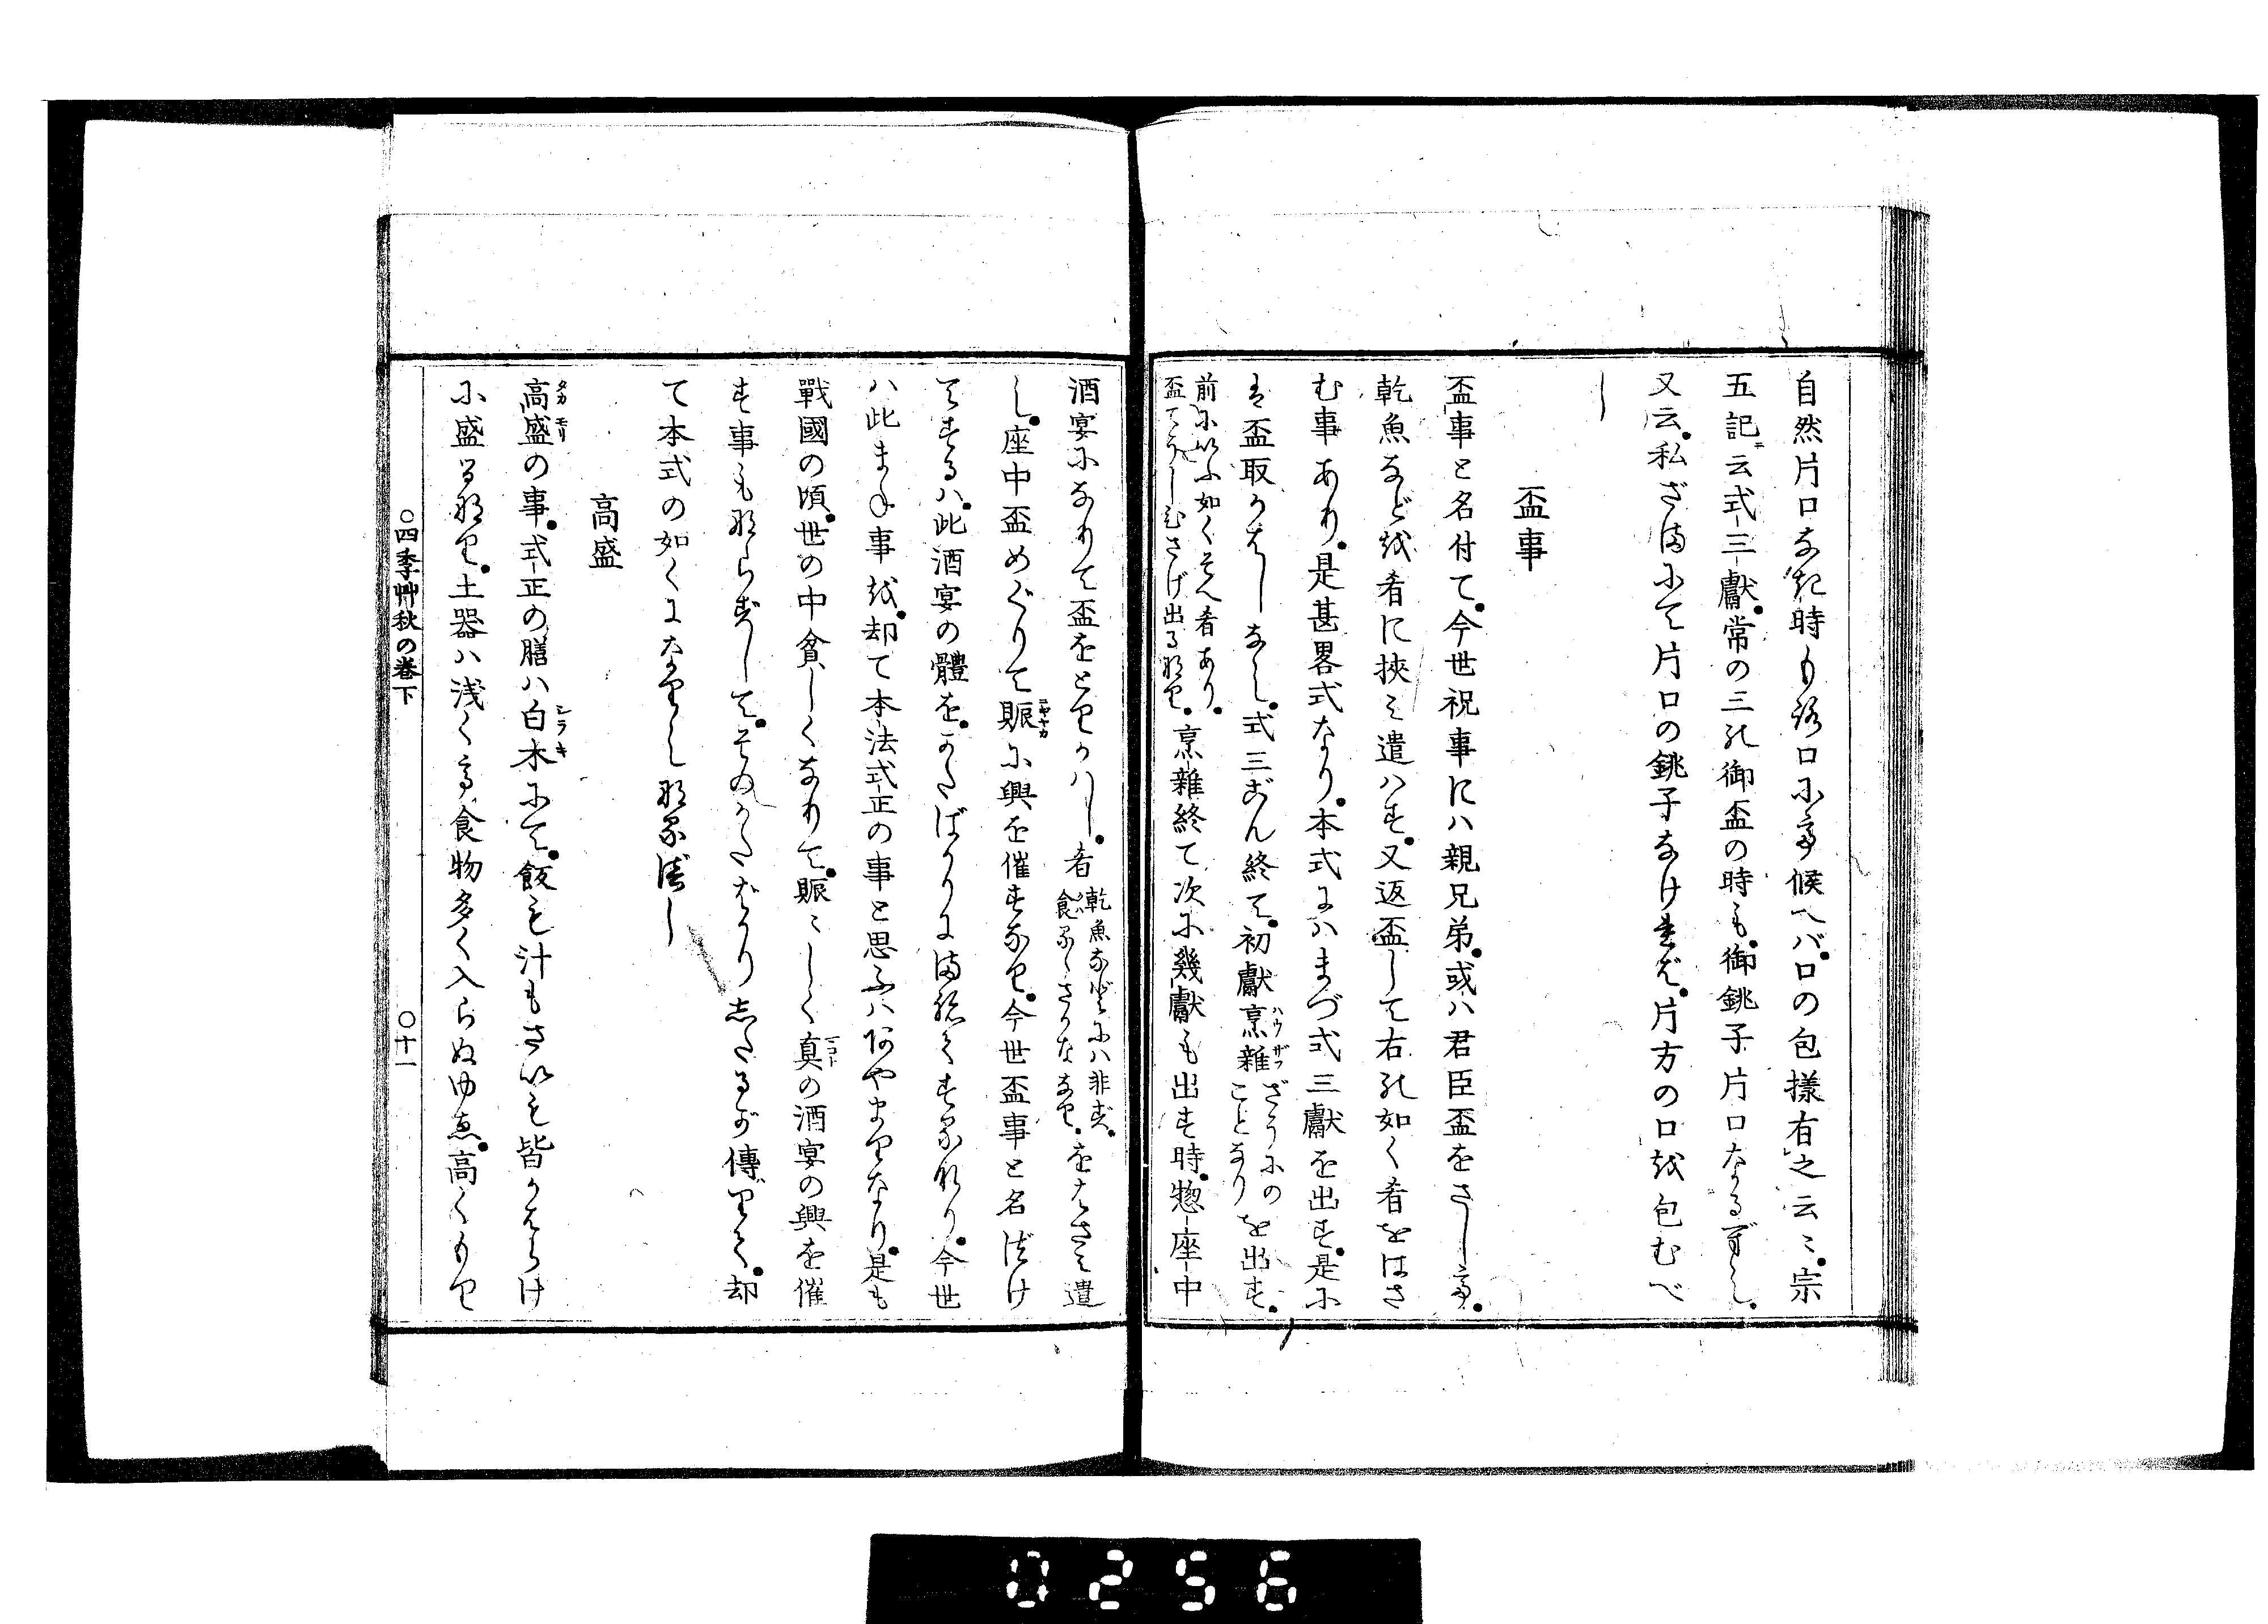 自然片口なき時も諸口にて候へバ口の包様有之云〻宗
五記ニ云式三獻常の三の御盃の時も御銚子片口たるべし
又云私ざまにて片口の銚子なけれバ片方の口を包むべ
し
盃事
盃事と名付て今世祝事にハ親兄弟或ハ君臣盃をさして
乾魚などを肴に挾ミ遣ハす又返盃して右の如く肴をはさ
む事あり是甚畧式なり本式にハまづ式三獻を出す是に
は盃取かはしなし式三こん終て初獻烹雜ハウザフざうにのことなりを出す
前にいふ如くそへ肴あり盃てうしひさげ出る也烹雜終て次に幾獻も出す時惣座中
酒宴になりて盃をとりかハし肴乾魚などにハ非ず食るゝさかななりをはさミ遣
し座中盃めぐりて賑ニギヤカに興を催すなり今世盃事と名づけ
てするハ此酒宴の體をかたばかりにまねてするなり今世
ハ此まね事を却て本法式正の事と思ふハあやまりなり是も
戰國の頃世の中貧しくなりて賑〻しく真マコトの酒宴の興を催
す事もならずしてそのかたばかりしたるが傳りて却
て本式の如くになりしなるべし
高盛
高盛タカモリの事式正の膳ハ白木シラキにて飯も汁もさいも皆かはらけ
に盛るなり土器ハ浅くて食物多く入らぬゆゑ高くもり
○四季艸秋の巻下
○十一
0256